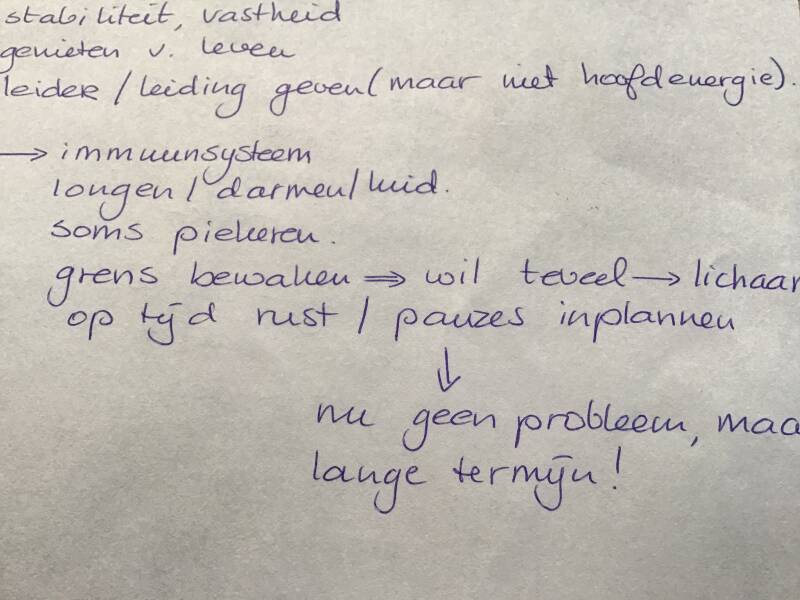 stabiliteit, vastheid
genieten v. leven
leider / leiding geven (maar niet hoofdenergie).
→ immuunsysteem
longen / darmen / huid.
soms piekeren.
grens bewaken ⇒ wil teveel → lichaam
op tijd rust / pauzes inplannen
↓
nu geen probleem, maa
lange termijn!